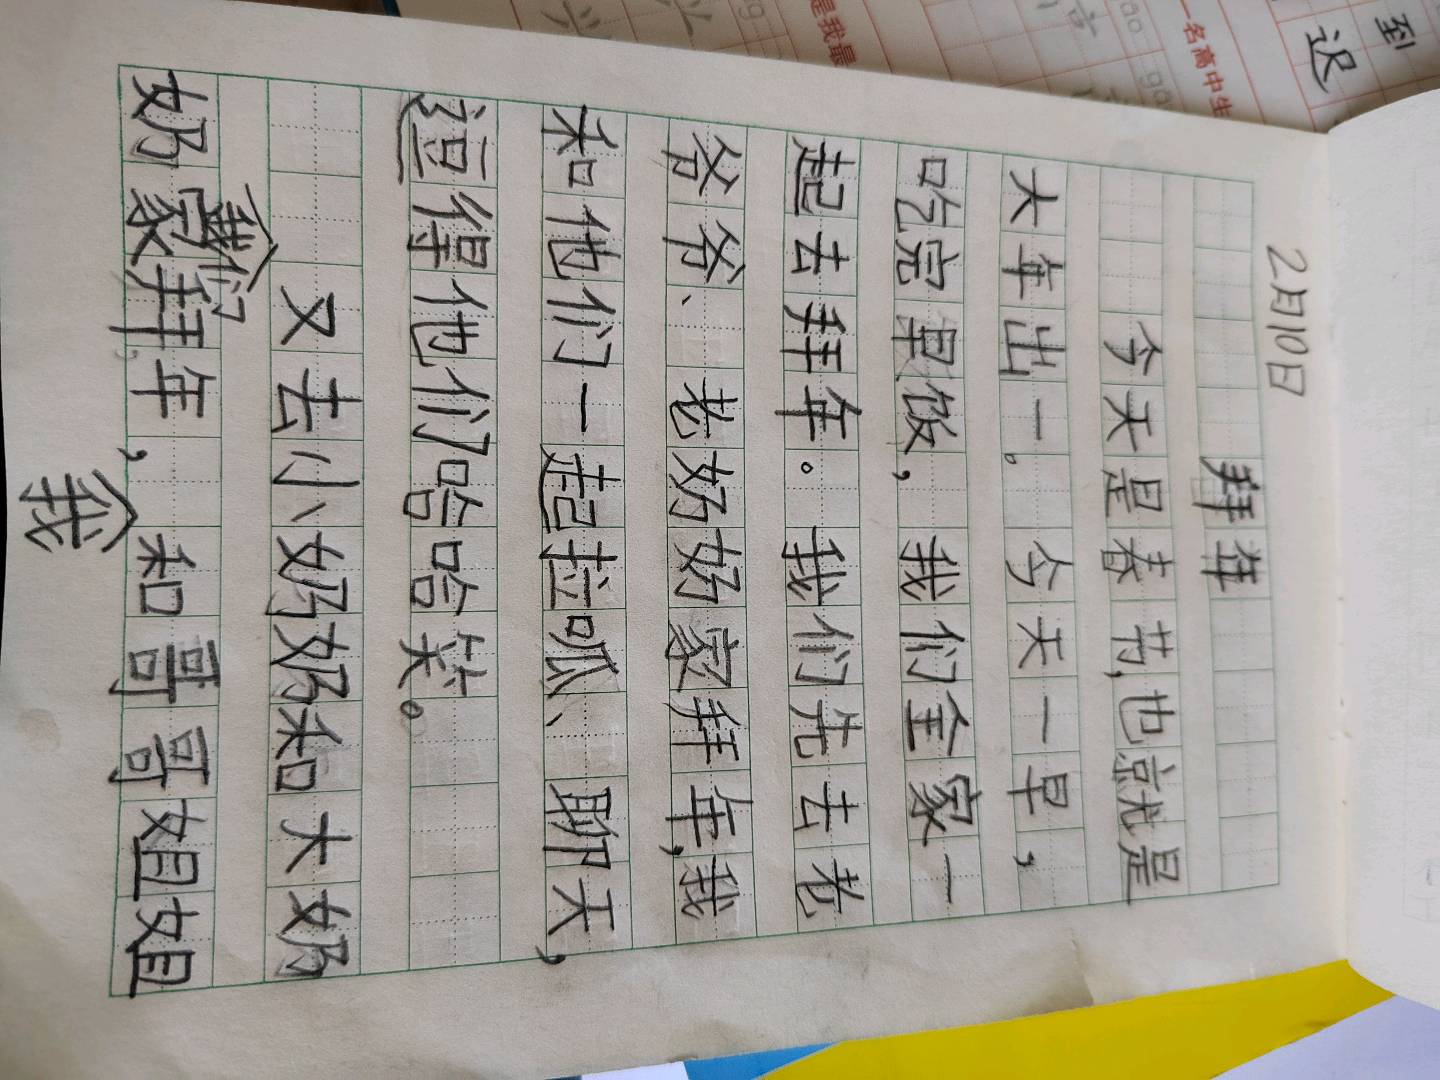 2月10日
拜年
今天是春节,也就是
大年出一。今天一早,
吃完早饭,我们全家一
起去拜年。我们先去老
爷爷、老奶奶家拜年,我
和他们一起拉呱、聊天,
逗得他们哈哈笑。
我们又去小奶奶和大奶
奶家拜年,我和哥哥姐姐
到
迟
一名高中生
是我最